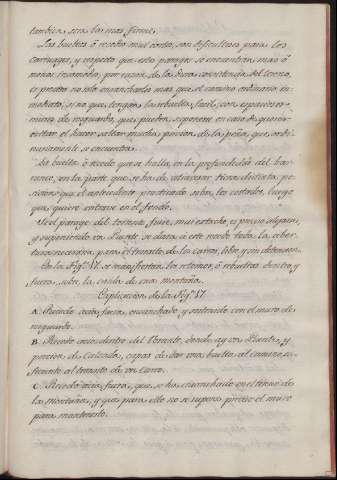 tambien sera las mas firme.
Las bueltas ô recodos mui cortos, son dificultosos para los
carruages, y respecto que estos parages se encuentran mas ô
menos incomodos, por razon de la dura consistencia del terreno,
es preciso no solo ensancharlos mas que el camino ordinario in-
mediato, si no que tengan la rebuelta facil, con espacio ex-
terior de resguardo, que pueden suponerse en caso de que ne-
cesitare el hacer saltar mucha porcion de la peña, que ordi-
nariamente se encuentra.
La buelta ô recodo que se halla en la profundidad del ba-
rranco, en la parte que se ha de atravesar tiene distinta po-
sicion que el antecedente practicado sobre los costados, luego
que quiere entrarse en el fondo.
Si el parage del torrente fuese mui estrecho, es preciso alejarse,
y suponiendo un Puente se dara a este modo toda la aber-
tura necesaria para el transito de los carros, libre y sin detencion.
En la Fig.ª 57. se manifiestan los retornos, ô rebueltas dentro y
fuera, sobre la caida de una montaña.
Explicacion de la Fig.ª 57
A. Recodo acia fuera, ensanchado y sostenido con el muro de
resguardo.
B. Recodo acia dentro del Torrente, donde ay un Puente, y
porcion de Calzada, capaz de dar una buelta al camino su-
ficiente al transito de un carro.
C. Recodo acia fuera, que se ha ensanchado en el terreno de
la montaña, y que para ello no se supone preciso el muro
para mantenerlo.